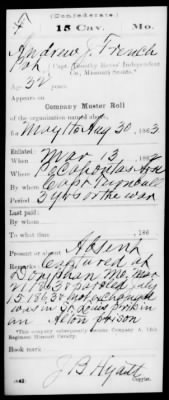 (Confederate.)
F 15 Cav. Mo.
Andrew J. French
Pvt, Capt. Timothy Reves' Independent
Co., Missouri Scouts.*
Age 32 years.
Appears on
Company Muster Roll
of the organization named above
for May 1 to Aug 30, 1863
Enlisted:
When Mar 13, 186
Where Pocahontas Ark
By whom Capt Turnbull
Period 3 yrs or the war
Last paid:
By whom
To what time , 186
Present or absent Absent
Remarks: Captured at
Doniphan Mo, Mar
15 1863 not exchanged
was in St Louis
an Alton prison
*This company subsequently became Company A, 15th
Regiment Missouri Cavalry.
Book mark:
J B Hyatt
(642) Copyist.